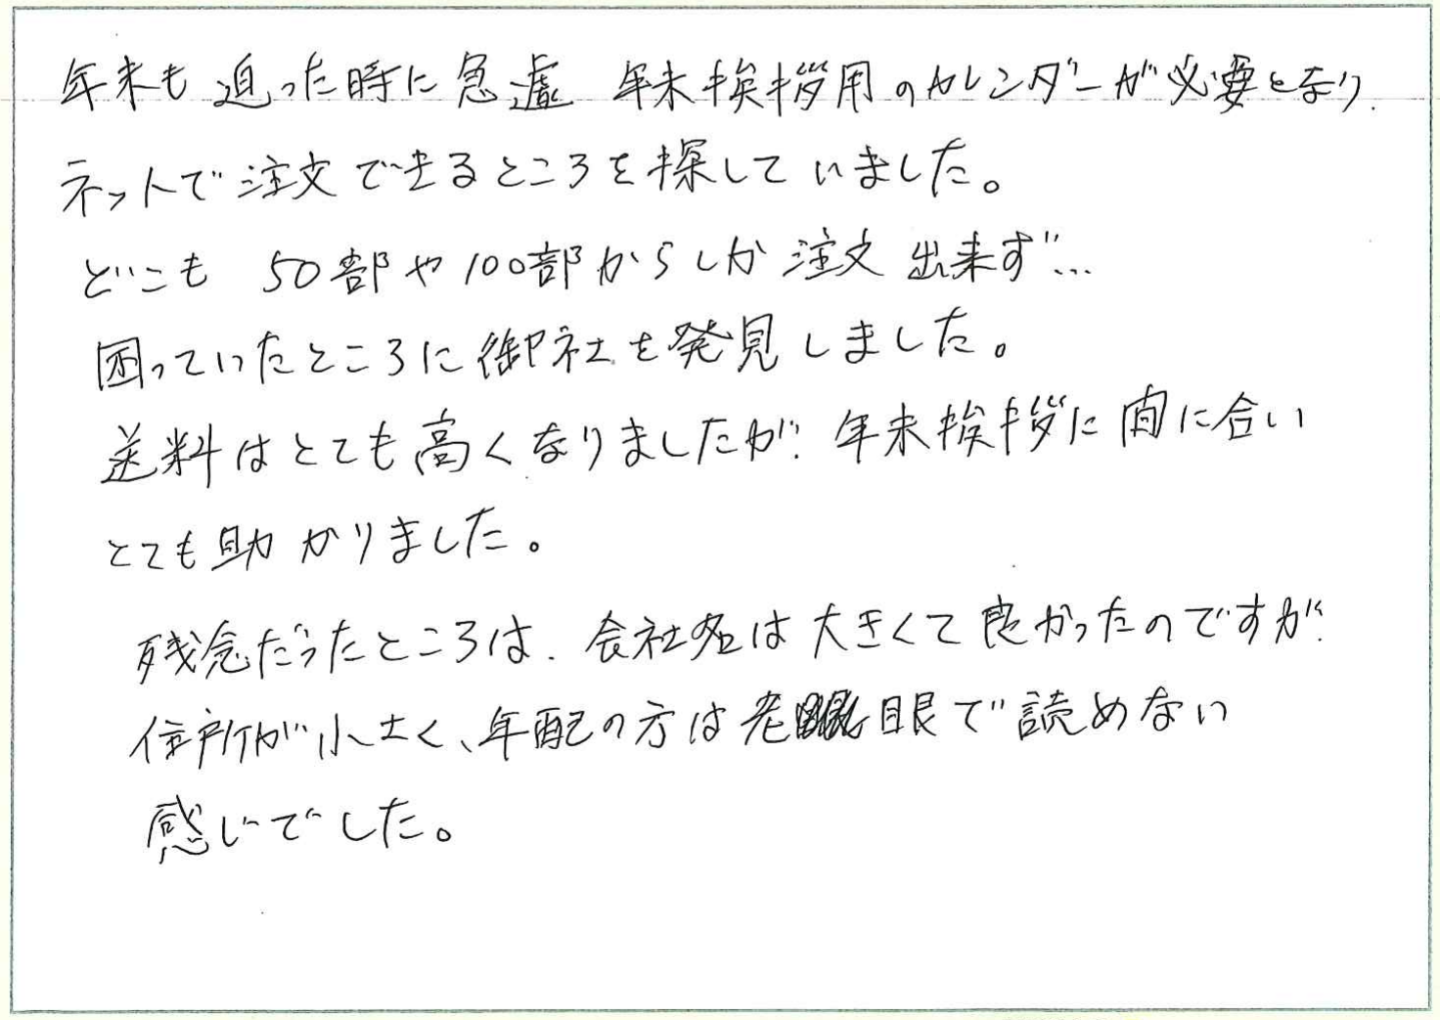 年末も迫った時に急遽 年末挨拶用のカレンダーが必要となり、
ネットで注文できるところを探していました。
どこも 50部や100部からしか注文出来ず…
困っていたところに御社を発見しました。
送料はとても高くなりましたが、年末挨拶に間に合い
とても助かりました。
残念だったところは、会社名は大きくて良かったのですが、
住所が小さく、年配の方は老眼で読めない
感じでした。